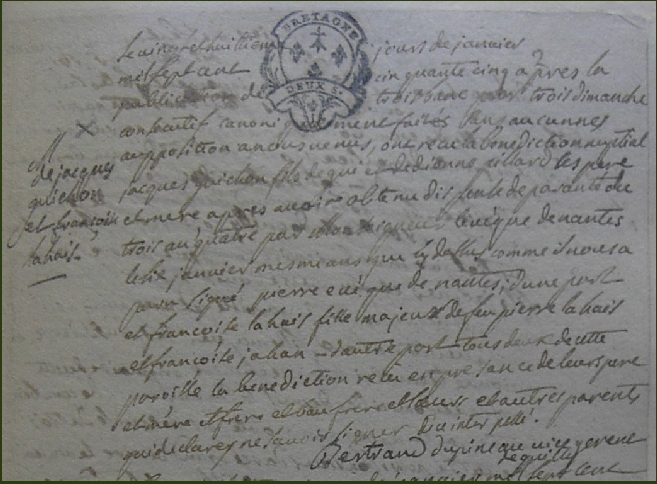 BRETAGNE
DEUX S.
le vinct et huitieme jours de janvier
mil sept cent cinquante cinq apres la
publication de trois banc par trois dimanche
consecutif canoniquement faites sans aucunnes
aupposition ancus venus, ont recu la benediction nuptial
jacques guichon fils de gui et de dianne pilard les pere
et mere apres avoire obtenu dispense de parante du
trois au quatre par monseigneur eveque de nantes
le janvier mesme ans que cy dessus comme il nous a
paru signé pierre evéque de nantes, d'une part
et francoise lahais fille majeur de feu pierre lahais
et francoise jahan d'autre part tous deux de cette
paroisse la benediction recu en presance de leurs pere
et mere et frere et bau frere et sœurs et autres parents
qui declarent ne savoir signer de ce inter pellé.
Bertrand dupineau vice gerent
de quilly
janvier mil sept cent
Me jacques
guichon
et francoise
lahais